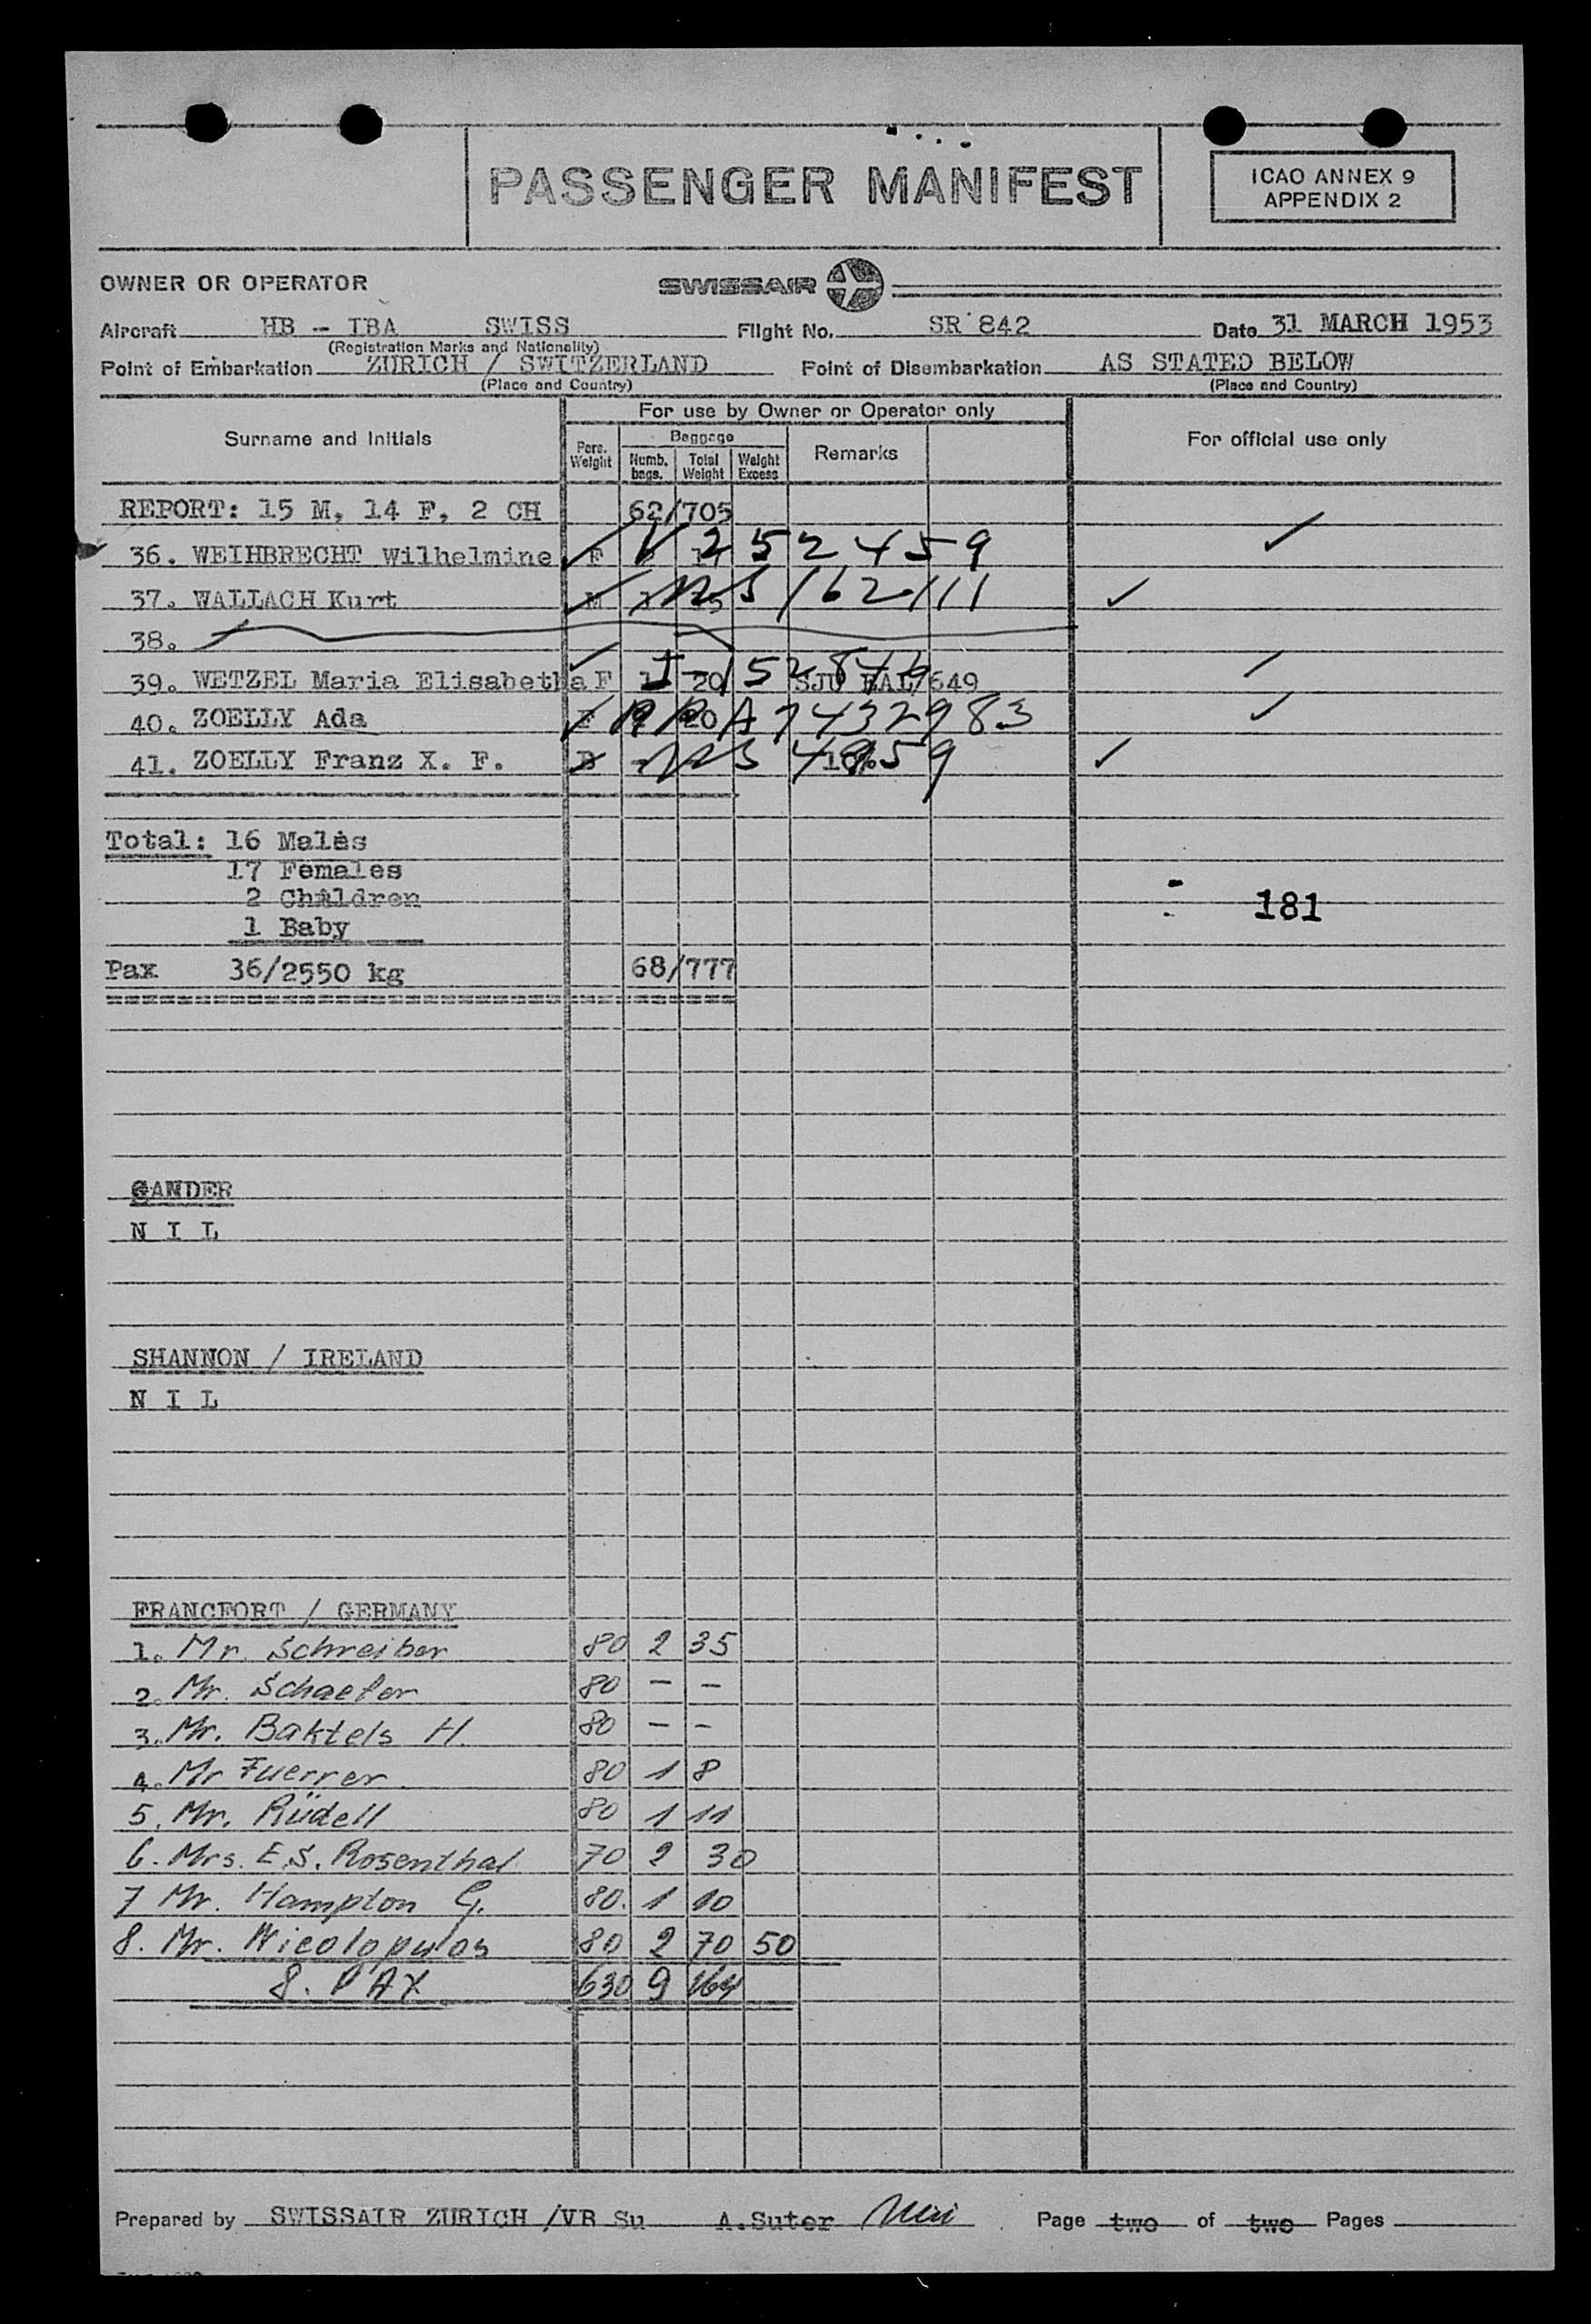 PASSENGER MANIFEST
ICAO ANNEX 9
APPENDIX 2
OWNER OR OPERATOR SWISSAIR
Aircraft HB - IBA SWISS Flight No. SR 842 Date 31 MARCH 1953
(Registration Marks and Nationality)
Point of Embarkation ZURICH / SWITZERLAND Point of Disembarkation AS STATED BELOW
(Place and Country) (Place and Country)
For use by Owner or Operator only
Surname and Initials Pers. Weight Baggage Remarks For official use only
Numb. bags. Total Weight Weight Excess
REPORT: 15 M, 14 F, 2 CH 62/705
36. WEIHBRECHT Wilhelmine F V 252459
37. WALLACH Kurt M 162111
38.
39. WETZEL Maria Elisabetha F 1 20 SJU EAL/649
40. ZOELLY Ada F 20 A7432983
41. ZOELLY Franz X. F. B
Total: 16 Males
17 Females
2 Children
181
1 Baby
Pax 36/2550 kg 68/777
GANDER
N I L
SHANNON / IRELAND
N I L
FRANCFORT / GERMANY
1. Mr. Schreiber 80 2 35
2. Mr. Schaefer 80 — —
3. Mr. Baktels H. 80 — —
4. Mr Fuerrer. 80 1 8
5. Mr. Rüdell 80 1 11
6. Mrs. E.S. Rosenthal 70 2 30
7 Mr. Hampton G. 80. 1 10
8. Mr. Nicolopulos 80 2 70 50
8. PAX 630 9 164
Prepared by SWISSAIR ZURICH /VR Su A.Suter Page two of two Pages